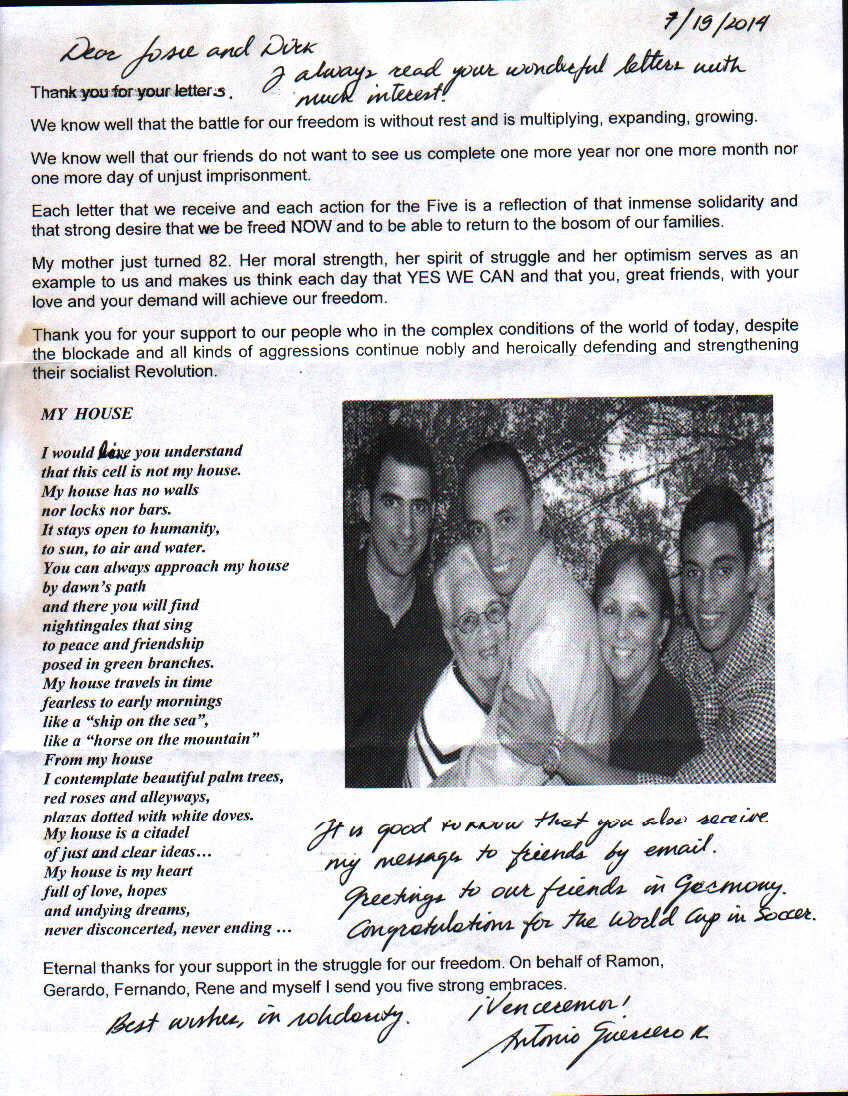 7/19/2014
Dear Josie and Dirk
I always read your wonderful letters with
Thank you for your letters.
much interest!
We know well that the battle for our freedom is without rest and is multiplying, expanding, growing.
We know well that our friends do not want to see us complete one more year nor one more month nor
one more day of unjust imprisonment.
Each letter that we receive and each action for the Five is a reflection of that inmense solidarity and
that strong desire that we be freed NOW and to be able to return to the bosom of our families.
My mother just turned 82. Her moral strength, her spirit of struggle and her optimism serves as an
example to us and makes us think each day that YES WE CAN and that you, great friends, with your
love and your demand will achieve our freedom.
Thank you for your support to our people who in the complex conditions of the world of today, despite
the blockade and all kinds of aggressions continue nobly and heroically defending and strengthening
their socialist Revolution.
MY HOUSE
I would like you understand
that this cell is not my house.
My house has no walls
nor locks nor bars.
It stays open to humanity,
to sun, to air and water.
You can always approach my house
by dawn's path
and there you will find
nightingales that sing
to peace and friendship
posed in green branches.
My house travels in time
fearless to early mornings
like a “ship on the sea”,
like a “horse on the mountain”
From my house
I contemplate beautiful palm trees,
red roses and alleyways,
plazas dotted with white doves.
My house is a citadel
of just and clear ideas…
My house is my heart
full of love, hopes
and undying dreams,
never disconcerted, never ending …
It is good to know that you also receive
my messages to friends by email.
Greetings to our friends in Germany.
Congratulations for the World Cup in Soccer.
Eternal thanks for your support in the struggle for our freedom. On behalf of Ramon,
Gerardo, Fernando, Rene and myself I send you five strong embraces.
Best wishes, in solidarity.
¡Venceremos!
Antonio Guerrero R